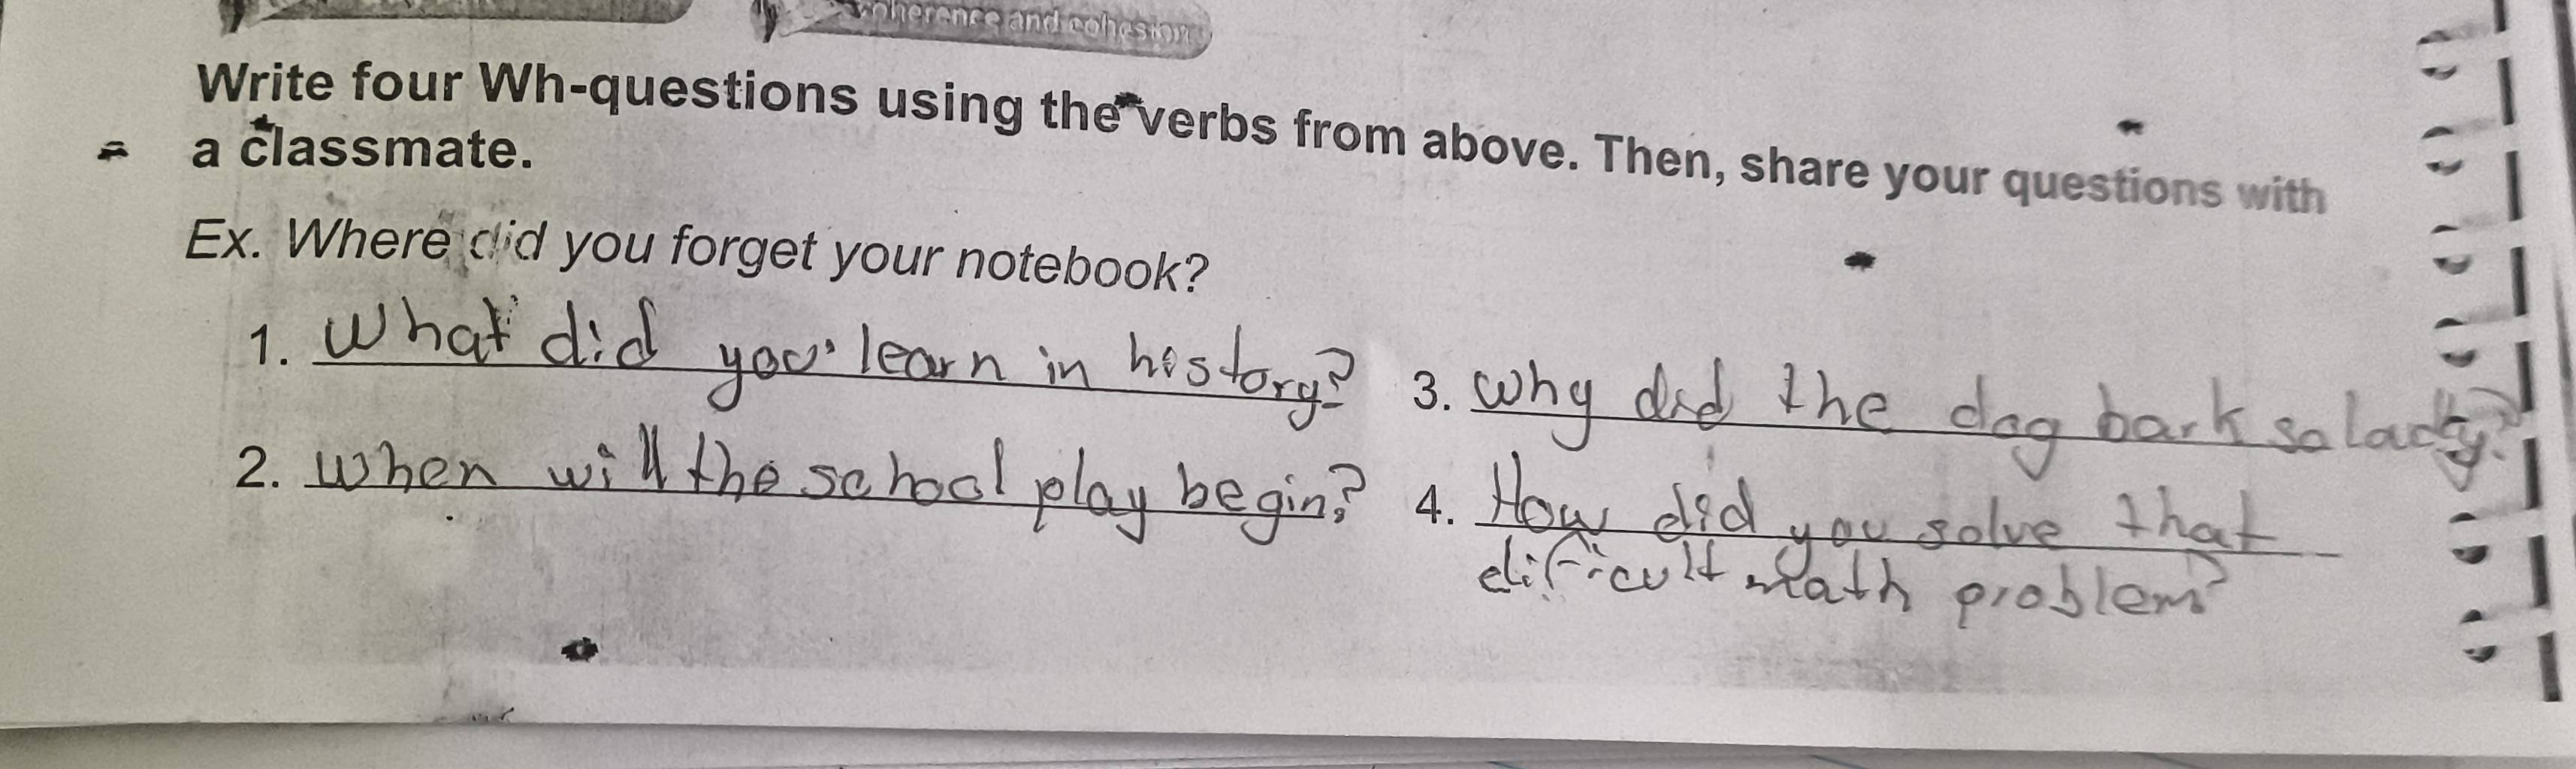 coherence and cohesion
Write four Wh-questions using the verbs from above. Then, share your questions with
a classmate.
Ex. Where did you forget your notebook?
1. What did you learn in history?
2. when will the school play begin?
3. why did the dog bark so
4. How did you solve that
difficult math problem?